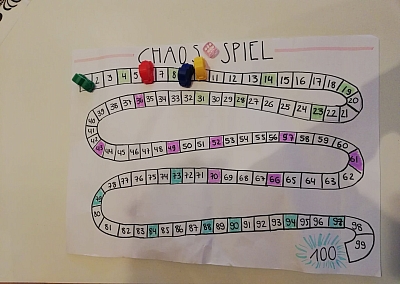 CHAOS SPIEL
2 3 4 5 7 8 11 12 13 14 15 16 17 18 19
20
39 38 37 36 35 34 33 32 31 30 29 28 27 26 25 24 23 22 21
40
41
42
43 44 45 46 47 48 49 50 51 52 53 54 55 56 57 58 59 60
61
78 77 76 75 74 73 72 71 70 69 68 67 66 65 64 63 62
79
80
81 82 83 84 85 86 87 88 89 90 91 92 93 94 95 96 97 98
99
100